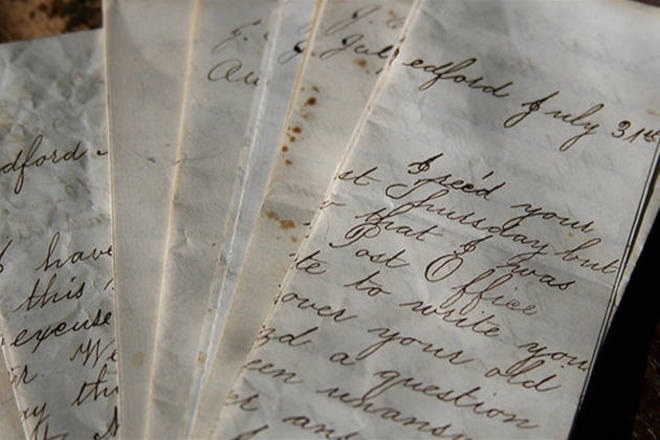 dford
I have
this
excuse
We
Au
J.
July
edford July 31st
I rec'd your
st Thursday but
that I was
Post Office
te to write you
over your old
a question
een unans